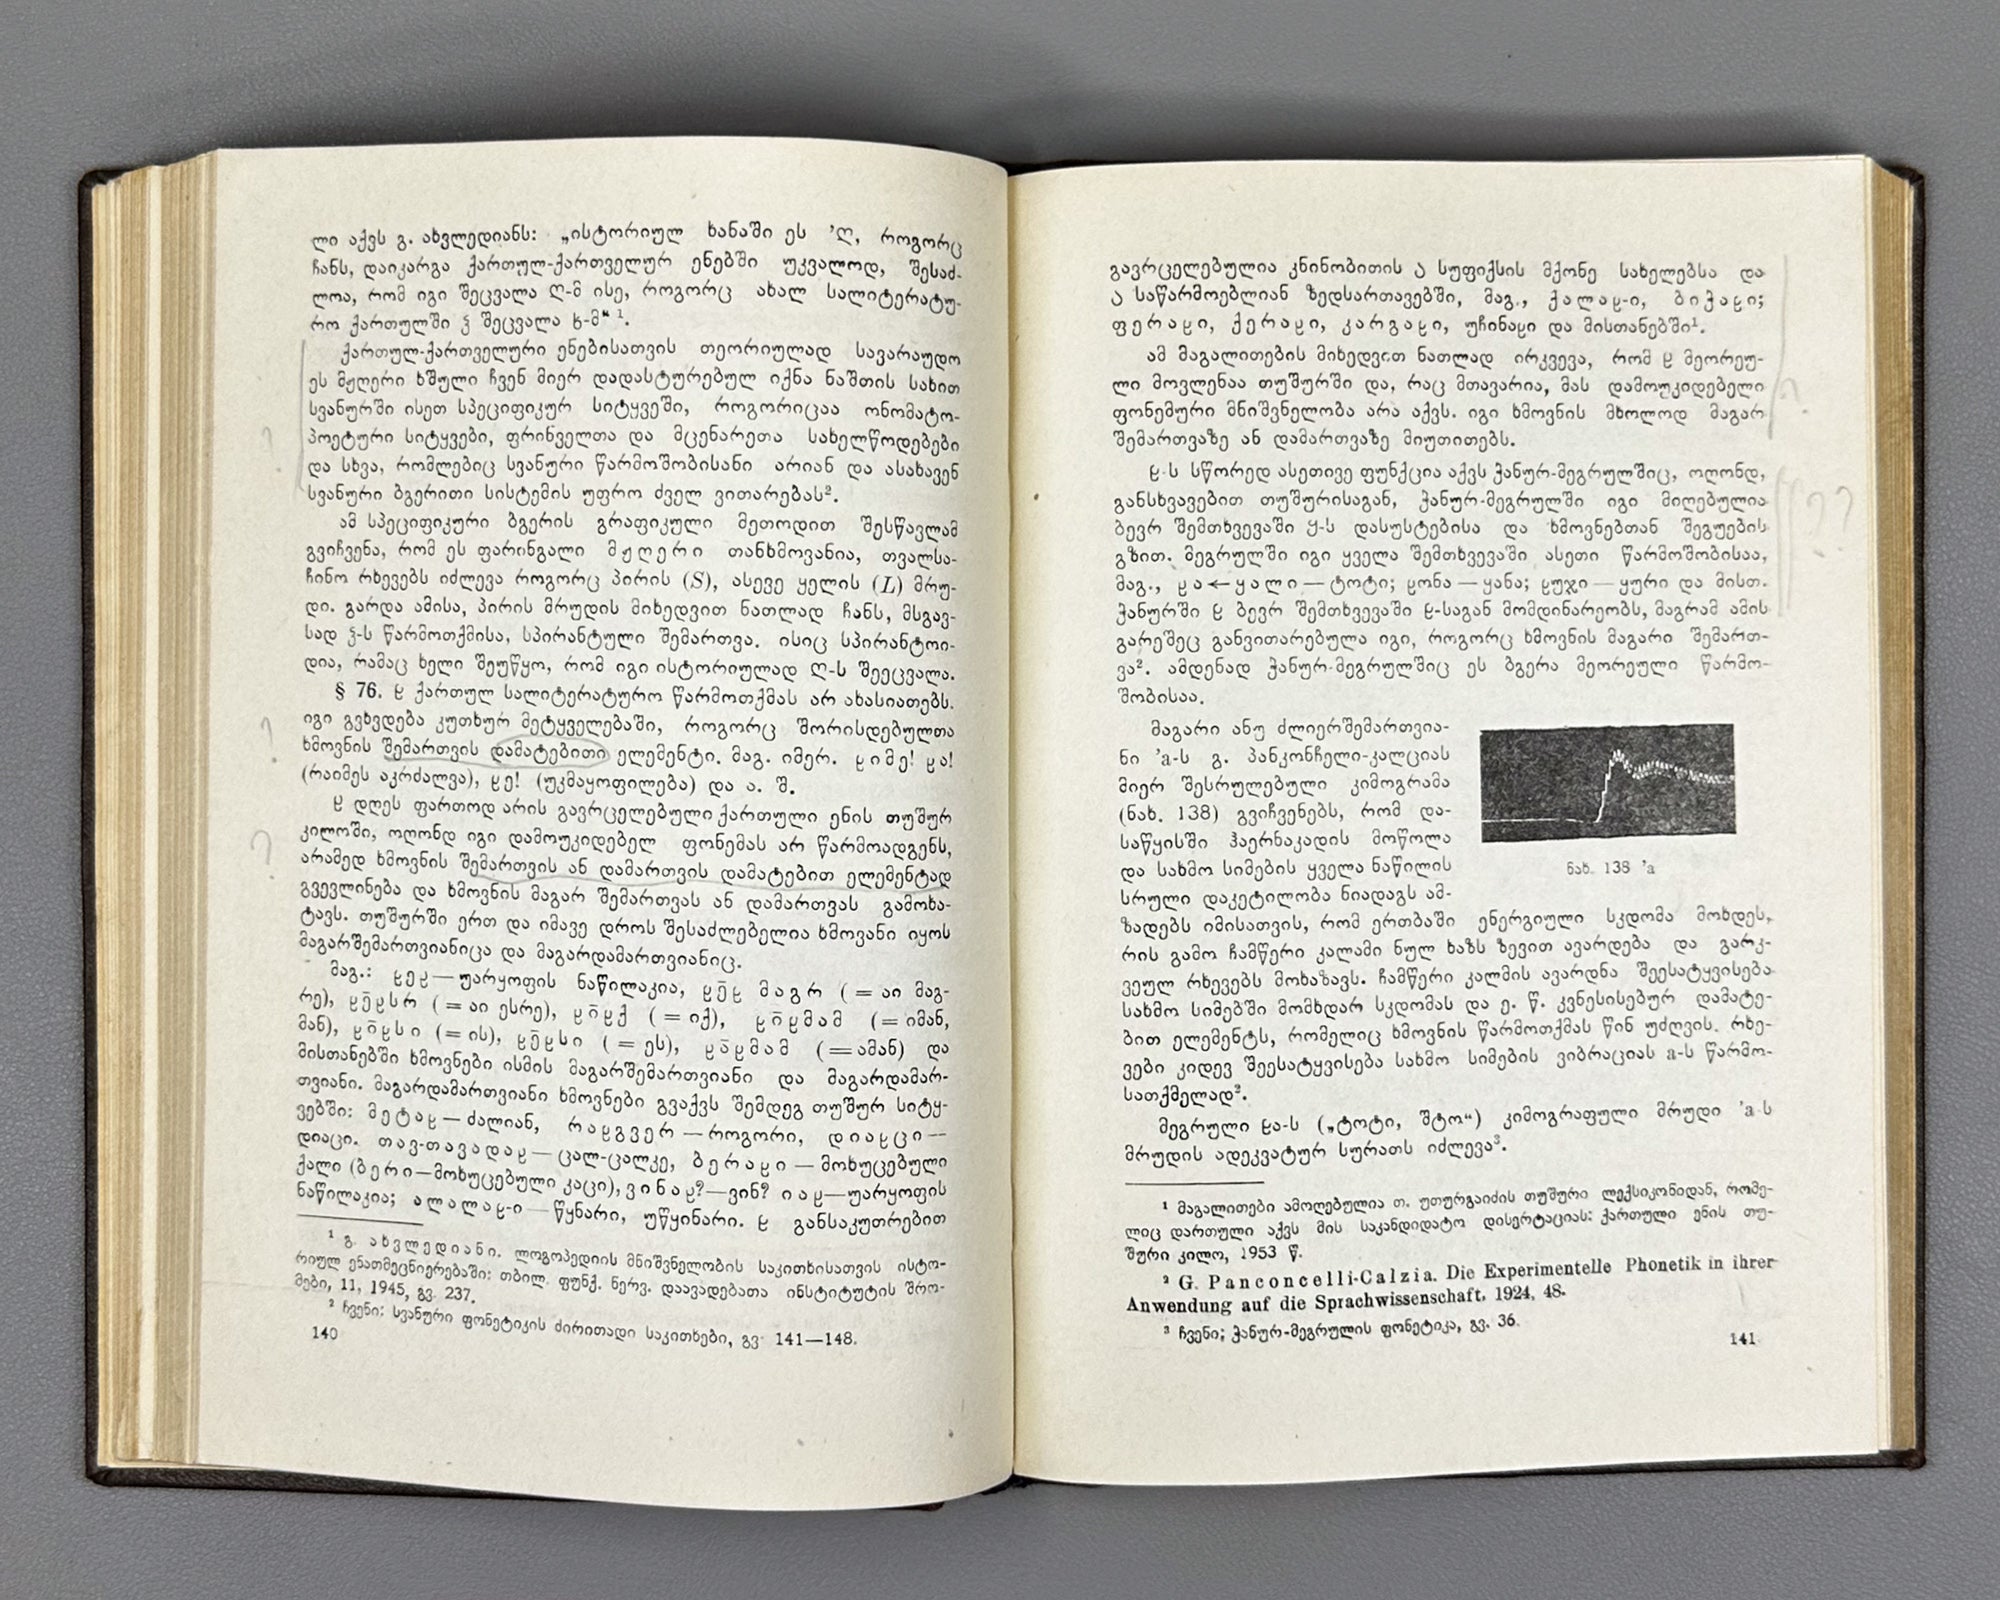 ლი აქვს გ. ახვლედიანს: „ისტორიულ ხანაში ეს ’Ღ, როგორც
ჩანს, დაიკარგა ქართულ-ქართველურ ენებში უკვალოდ, შესაძ-
ლოა, რომ იგი შეცვალა ღ-მ ისე, როგორც ახალ სალიტერატუ-
რო ქართულში ჴ შეცვალა ხ-მ“ ¹.
ქართულ-ქართველური ენებისათვის თეორიულად სავარაუდო
ეს მჟღერი ხშული ჩვენ მიერ დადასტურებულ იქნა ნაშთის სახით
სვანურში ისეთ სპეციფიკურ სიტყვეში, როგორიცაა ონომატო-
პოეტური სიტყვები, ფრინველთა და მცენარეთა სახელწოდებები
და სხვა, რომლებიც სვანური წარმოშობისანი არიან და ასახავენ
სვანური ბგერითი სისტემის უფრო ძველ ვითარებას².
ამ სპეციფიკური ბგერის გრაფიკული მეთოდით შესწავლამ
გვიჩვენა, რომ ეს ფარინგალი მჟღერი თანხმოვანია, თვალსა-
ჩინო რხევებს იძლევა როგორც პირის (S), ასევე ყელის (L) მრუ-
დი. გარდა ამისა, პირის მრუდის მიხედვით ნათლად ჩანს, მსგავ-
სად ჴ-ს წარმოთქმისა, სპირანტული შემართვა. ისიც სპირანტოი-
დია, რამაც ხელი შეუწყო, რომ იგი ისტორიულად ღ-ს შეეცვალა.
§ 76. ჸ ქართულ სალიტერატურო წარმოთქმას არ ახასიათებს.
იგი გვხვდება კუთხურ მეტყველებაში, როგორც შორისდებულთა
ხმოვნის შემართვის დამატებითი ელემენტი. მაგ. იმერ. ჸიმე! ჸა!
(რაიმეს აკრძალვა), ჸე! (უკმაყოფილება) და ა. შ.
ჸ დღეს ფართოდ არის გავრცელებული ქართული ენის თუშურ
კილოში, ოღონდ იგი დამოუკიდებელ ფონემას არ წარმოადგენს,
არამედ ხმოვნის შემართვის ან დამართვის დამატებით ელემენტად
გვევლინება და ხმოვნის მაგარ შემართვას ან დამართვას გამოხა-
ტავს. თუშურში ერთ და იმავე დროს შესაძლებელია ხმოვანი იყოს
მაგარშემართვიანიცა და მაგარდამართვიანიც.
მაგ.: ჸეჸ — უარყოფის ნაწილაკია, ჸე̄ჸ მაგრ (= აი მაგ-
რე), ჸე̄ჸსრ (= აი ესრე), ჸო̄ჸქ (= იქ), ჸო̄ჸმამ (= იმან,
მან), ჸო̄ჸსი (= ის), ჸე̄ჸსი (= ეს), ჸა̄ჸმამ (= ამან) და
მისთანებში ხმოვნები ისმის მაგარშემართვიანი და მაგარდამარ-
თვიანი. მაგარდამართვიანი ხმოვნები გვაქვს შემდეგ თუშურ სიტყ-
ვებში: მეტაჸ — ძალიან, რაჸგვერ — როგორი, დიაჸცი —
დიაცი. თავ-თავადაჸ — ცალ-ცალკე, ბერაჸი — მოხუცებული
ქალი (ბერი — მოხუცებული კაცი), ვინაჸ? — ვინ? იაჸ — უარყოფის
ნაწილაკია; ალალაჸ-ი — წყნარი, უწყინარი. ჸ განსაკუთრებით
¹ გ. ახვლედიანი. ლოგოპედიის მნიშვნელობის საკითხისათვის ისტო-
რიულ ენათმეცნიერებაში: თბილ. ფუნქ. ნერვ. დაავადებათა ინსტიტუტის შრო-
მები, 11, 1945, გვ. 237.
² ჩვენი: სვანური ფონეტიკის ძირითადი საკითხები, გვ. 141—148.
140
გავრცელებულია კნინობითის ა სუფიქსის მქონე სახელებსა და
ა საწარმოებლიან ზედსართავებში, მაგ., ქალაჸ-ი, ბიჭაჸი;
ფერაჸი, ქერაჸი, კარგაჸი, უჩინაჸი და მისთანებში¹.
ამ მაგალითების მიხედვით ნათლად ირკვევა, რომ ჸ მეორეუ-
ლი მოვლენაა თუშურში და, რაც მთავარია, მას დამოუკიდებელი
ფონემური მნიშვნელობა არა აქვს. იგი ხმოვნის მხოლოდ მაგარ
შემართვაზე ან დამართვაზე მიუთითებს.
ჸ-ს სწორედ ასეთივე ფუნქცია აქვს ჭანურ-მეგრულშიც, ოღონდ,
განსხვავებით თუშურისაგან, ჭანურ-მეგრულში იგი მიღებულია
ბევრ შემთხვევაში ყ-ს დასუსტებისა და ხმოვნებთან შეგუების
გზით. მეგრულში იგი ყველა შემთხვევაში ასეთი წარმოშობისაა,
მაგ., ჸა ← ყალი — ტოტი; ჸონა — ყანა; ჸუჯი — ყური და მისთ.
ჭანურში ჸ ბევრ შემთხვევაში ჸ-საგან მომდინარეობს, მაგრამ ამის
გარეშეც განვითარებულა იგი, როგორც ხმოვნის მაგარი შემართ-
ვა². ამდენად ჭანურ-მეგრულშიც ეს ბგერა მეორეული წარმო-
შობისაა.
მაგარი ანუ ძლიერშემართვია-
ნი ’a-ს გ. პანკონჩელი-კალციას
მიერ შესრულებული კიმოგრამა
(ნახ. 138) გვიჩვენებს, რომ და-
საწყისში ჰაერნაკადის მოწოლა
და სახმო სიმების ყველა ნაწილის
სრული დაკეტილობა ნიადაგს ამ-
ზადებს იმისათვის, რომ ერთბაში ენერგიული სკდომა მოხდეს,
ნახ. 138 ’a
რის გამო ჩამწერი კალამი ნულ ხაზს ზევით ავარდება და გარკ-
ვეულ რხევებს მოხაზავს. ჩამწერი კალმის ავარდნა შეესატყვისება
სახმო სიმებში მომხდარ სკდომას და ე. წ. კვნესისებურ დამატე-
ბით ელემენტს, რომელიც ხმოვნის წარმოთქმას წინ უძღვის. რხე-
ვები კიდევ შეესატყვისება სახმო სიმების ვიბრაციას a-ს წარმო-
სათქმელად².
მეგრული ჸა-ს („ტოტი, შტო“) კიმოგრაფული მრუდი ’a-ს
მრუდის ადეკვატურ სურათს იძლევა³.
¹ მაგალითები ამოღებულია თ. უთურგაიძის თუშური ლექსიკონიდან, რომე-
ლიც დართული აქვს მის საკანდიდატო დისერტაციას: ქართული ენის თუ-
შური კილო, 1953 წ.
² G. Panconcelli-Calzia. Die Experimentelle Phonetik in ihrer
Anwendung auf die Sprachwissenschaft, 1924, 48.
³ ჩვენი; ჭანურ-მეგრულის ფონეტიკა, გვ. 36.
141